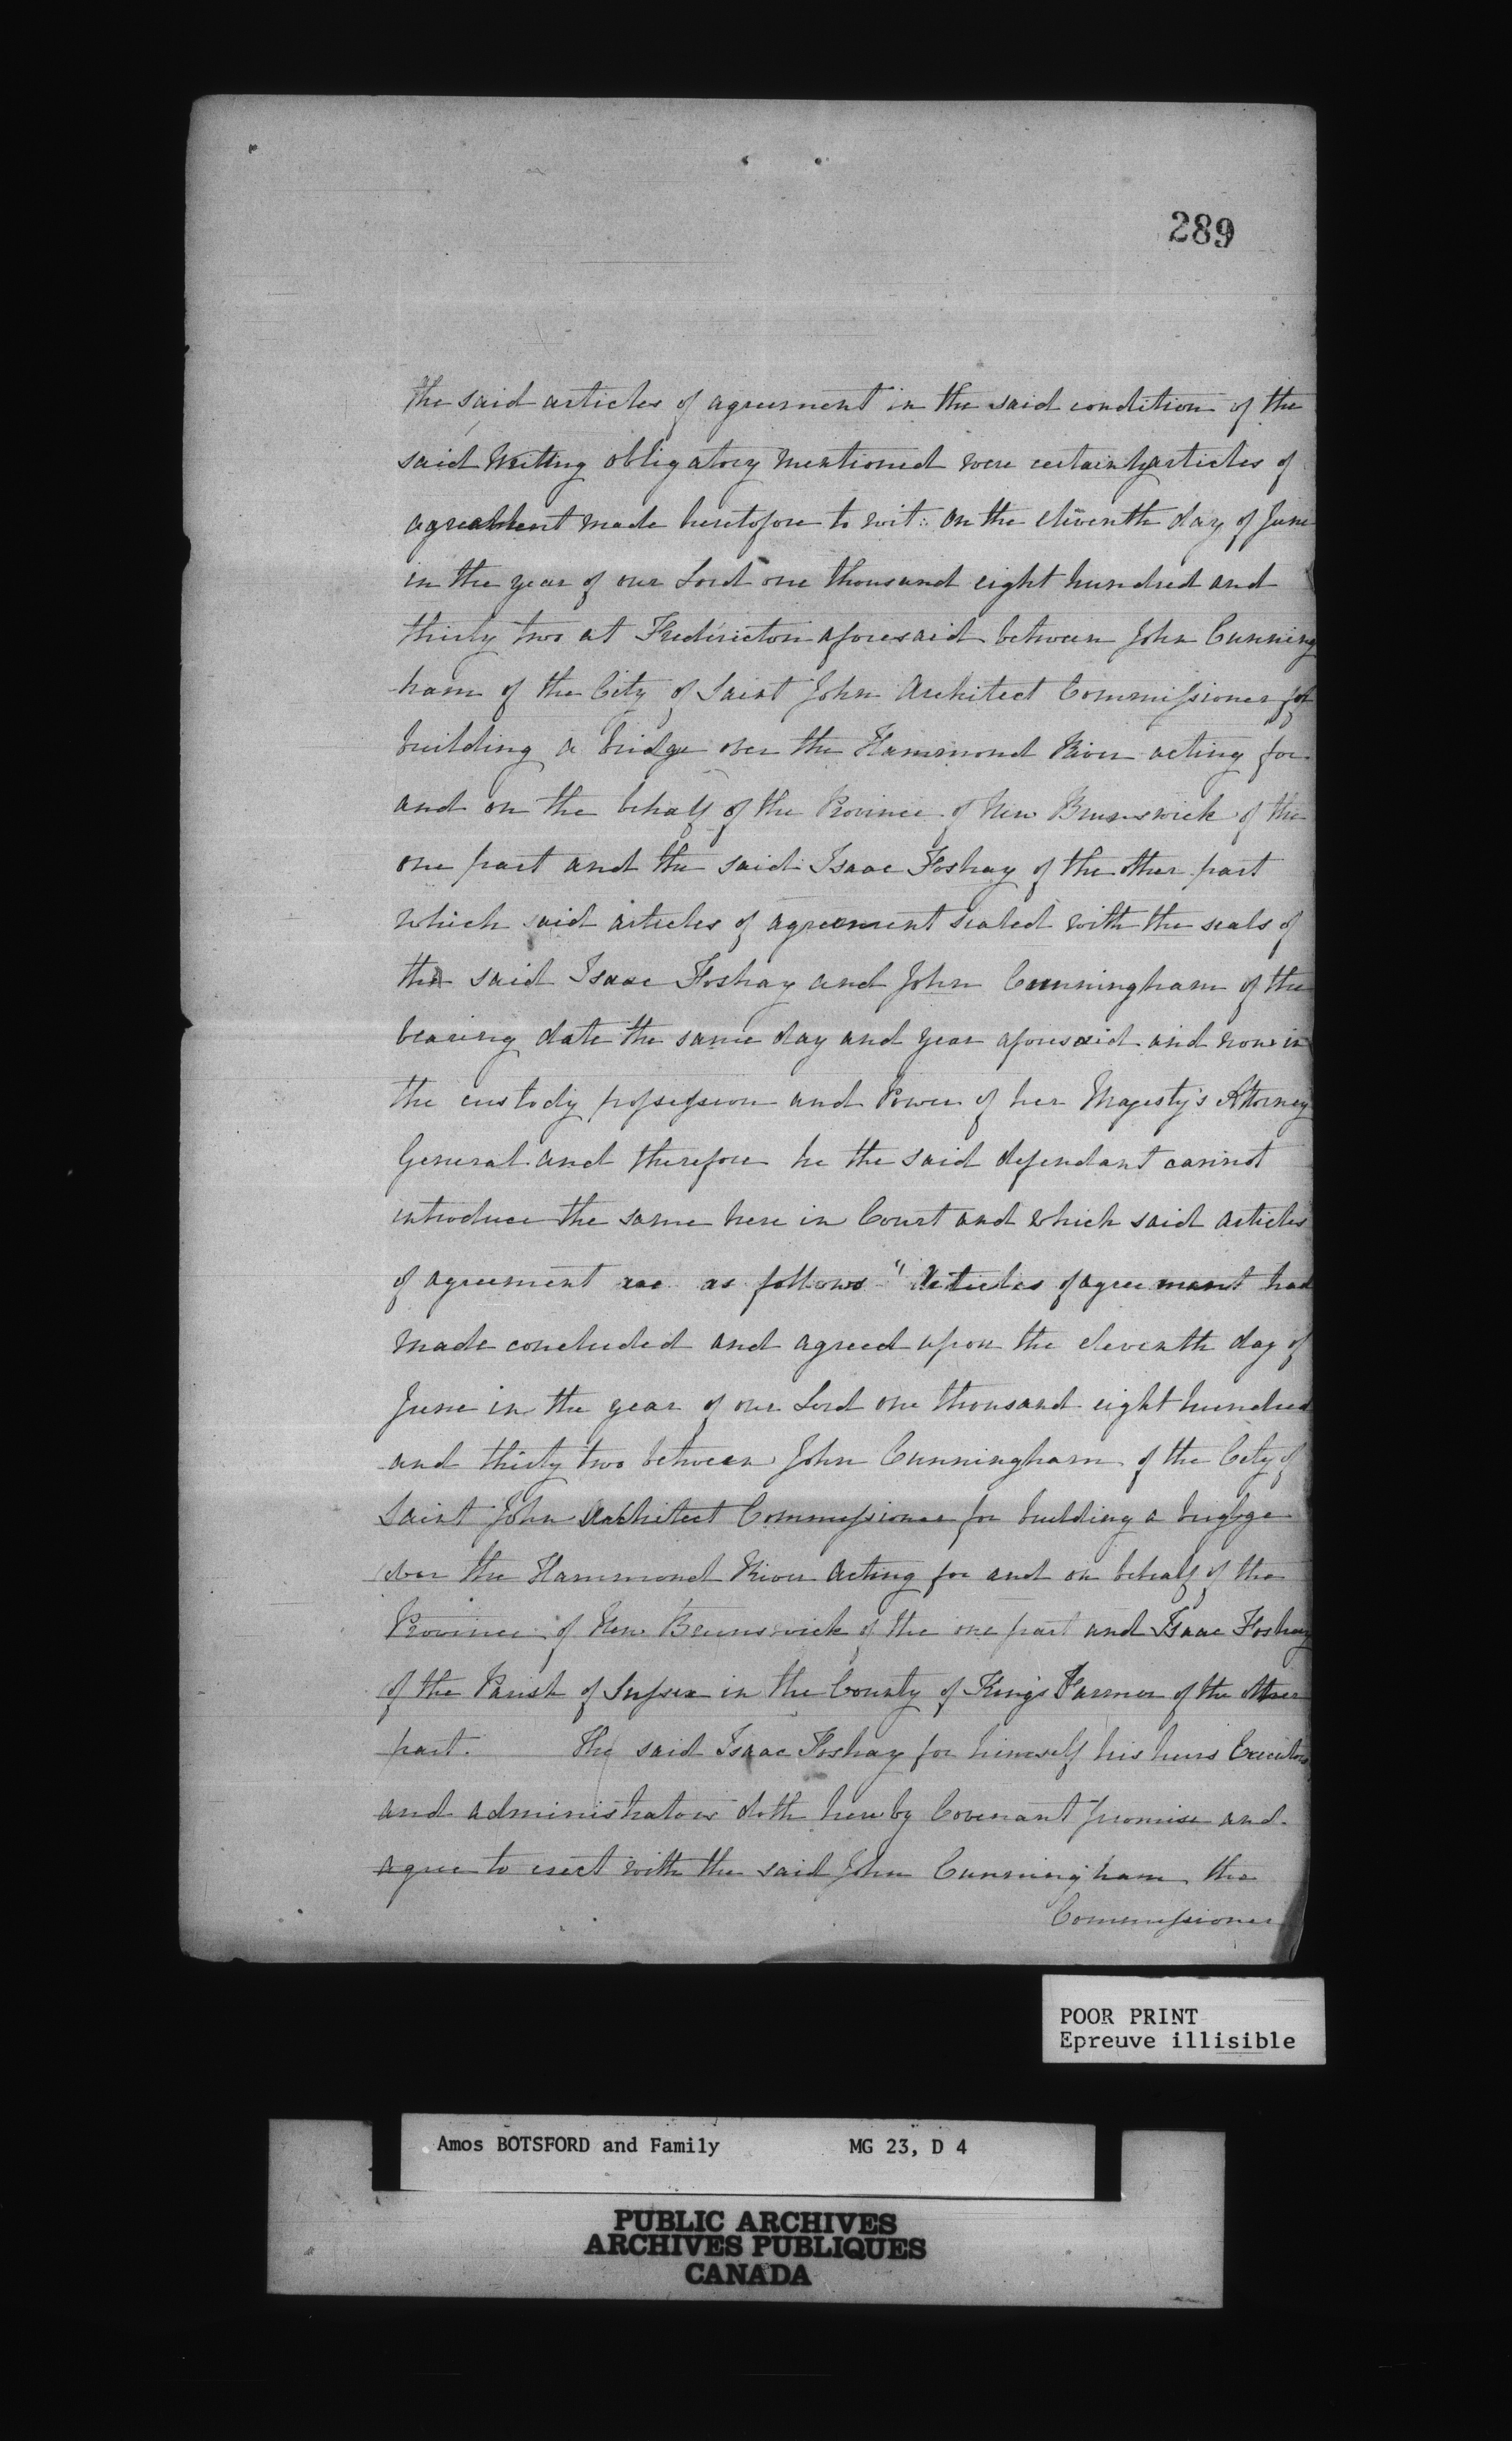 289
the said articles of agreement in the said condition of the
said Writing obligatory mentioned were certain articles of
agreement made heretofore to wit: on the eleventh day of June
in the year of our Lord one thousand eight hundred and
thirty two at Fredericton aforesaid between John Cunning
ham of the City of Saint John Architect Commissioner for
building a bridge over the Hammond River acting for
and on the behalf of the Province of New Brunswick of the
one part and the said Isaac Foshay of the other part
which said articles of agreement sealed with the seals of
the said Isaac Foshay and John Cunningham of the
bearing date the same day and year aforesaid and now in
the custody possession and Power of her Majesty's Attorney
General and therefore he the said defendant cannot
introduce the same here in Court and which said articles
of agreement are as follows "Articles of agreement had
made concluded and agreed upon the eleventh day of
June in the year of our Lord one thousand eight hundred
and thirty two between John Cunningham of the City of
Saint John Architect Commissioner for building a bridge
over the Hammond River acting for and on behalf of the
Province of New Brunswick of the one part and Isaac Foshay
of the Parish of Sussex in the County of Kings Farmer of the other
part. The said Isaac Foshay for himself his heirs Executors
and administrators doth hereby Covenant promise and
agree to erect with the said John Cunningham the
Commissioner
POOR PRINT
Epreuve illisible
Amos BOTSFORD and Family MG 23, D 4
PUBLIC ARCHIVES
ARCHIVES PUBLIQUES
CANADA